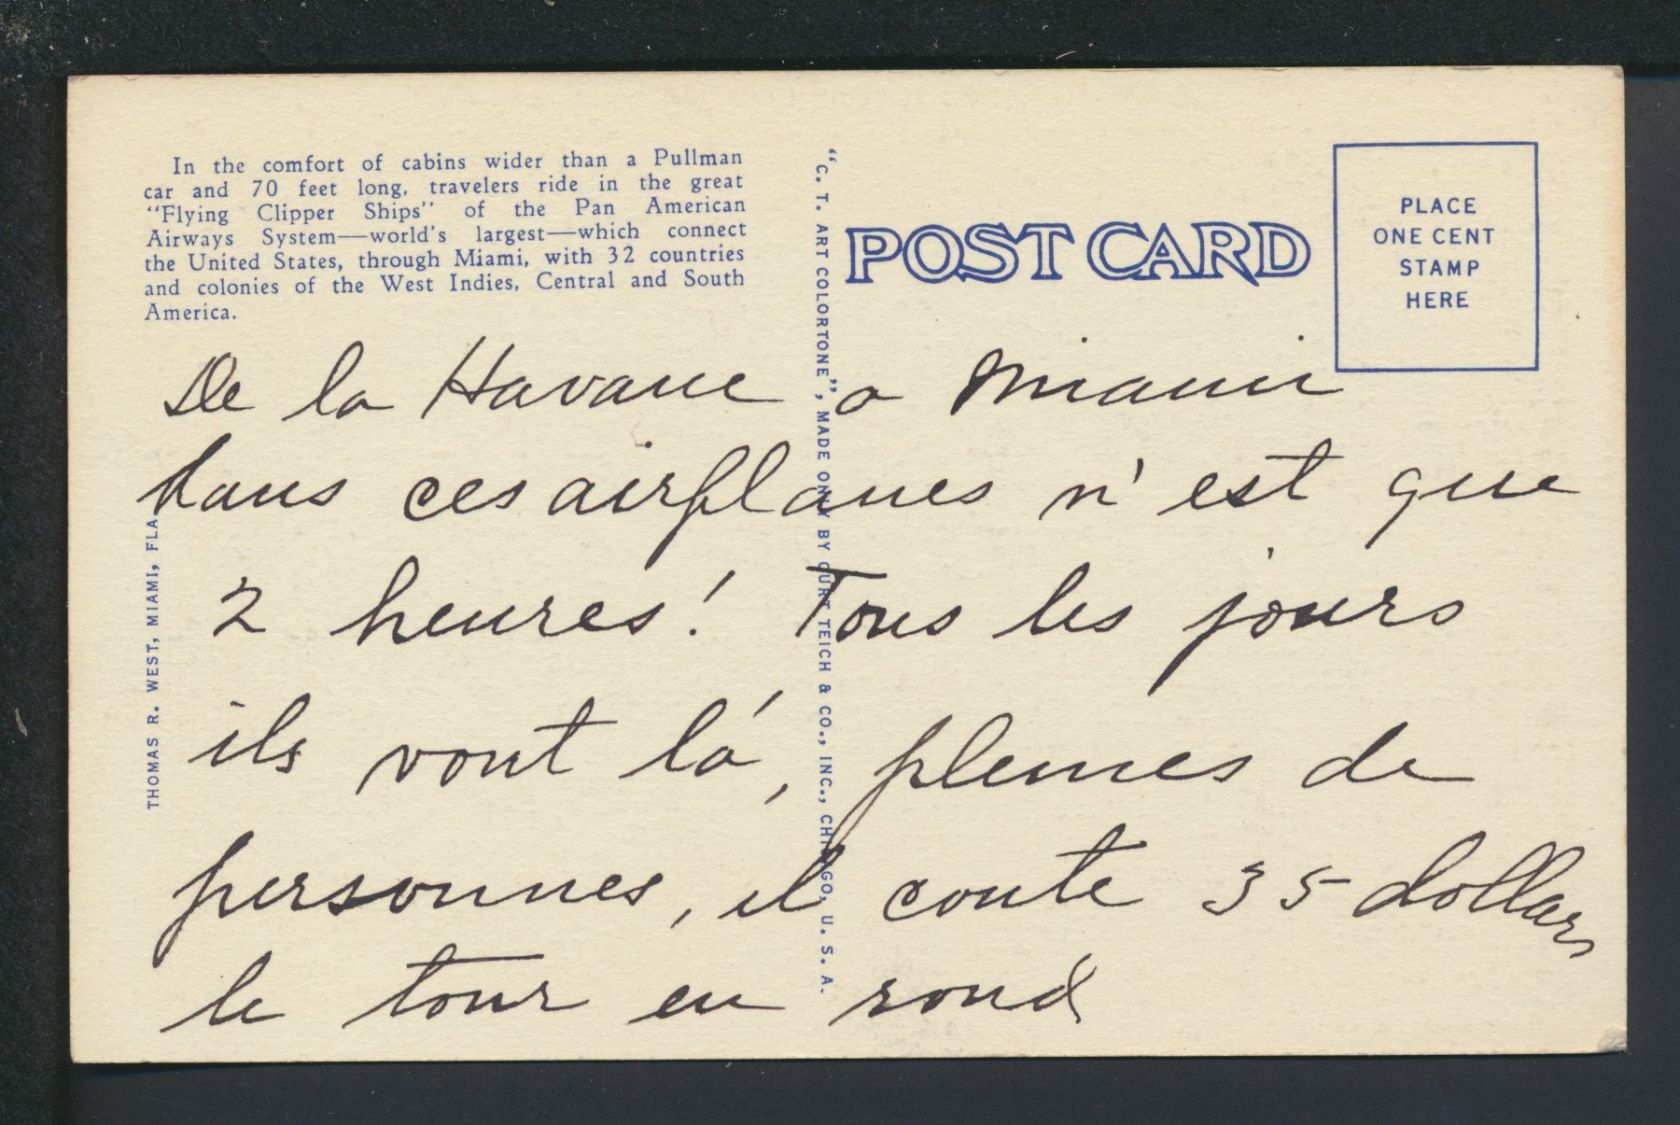 In the comfort of cabins wider than a Pullman
car and 70 feet long, travelers ride in the great
"Flying Clipper Ships" of the Pan American
Airways System—world's largest—which connect
the United States, through Miami, with 32 countries
and colonies of the West Indies, Central and South
America.
POST CARD
PLACE
ONE CENT
STAMP
HERE
De la Havane a Miami
dans ces airplanes n'est que
2 heures! Tous les jours
ils vont lá, pleines de
personnes, il coute 35 dollars
le tour en rond
THOMAS R. WEST, MIAMI, FLA
"C. T. ART COLORTONE", MADE ONLY BY CURT TEICH & CO., INC., CHICAGO, U. S. A.